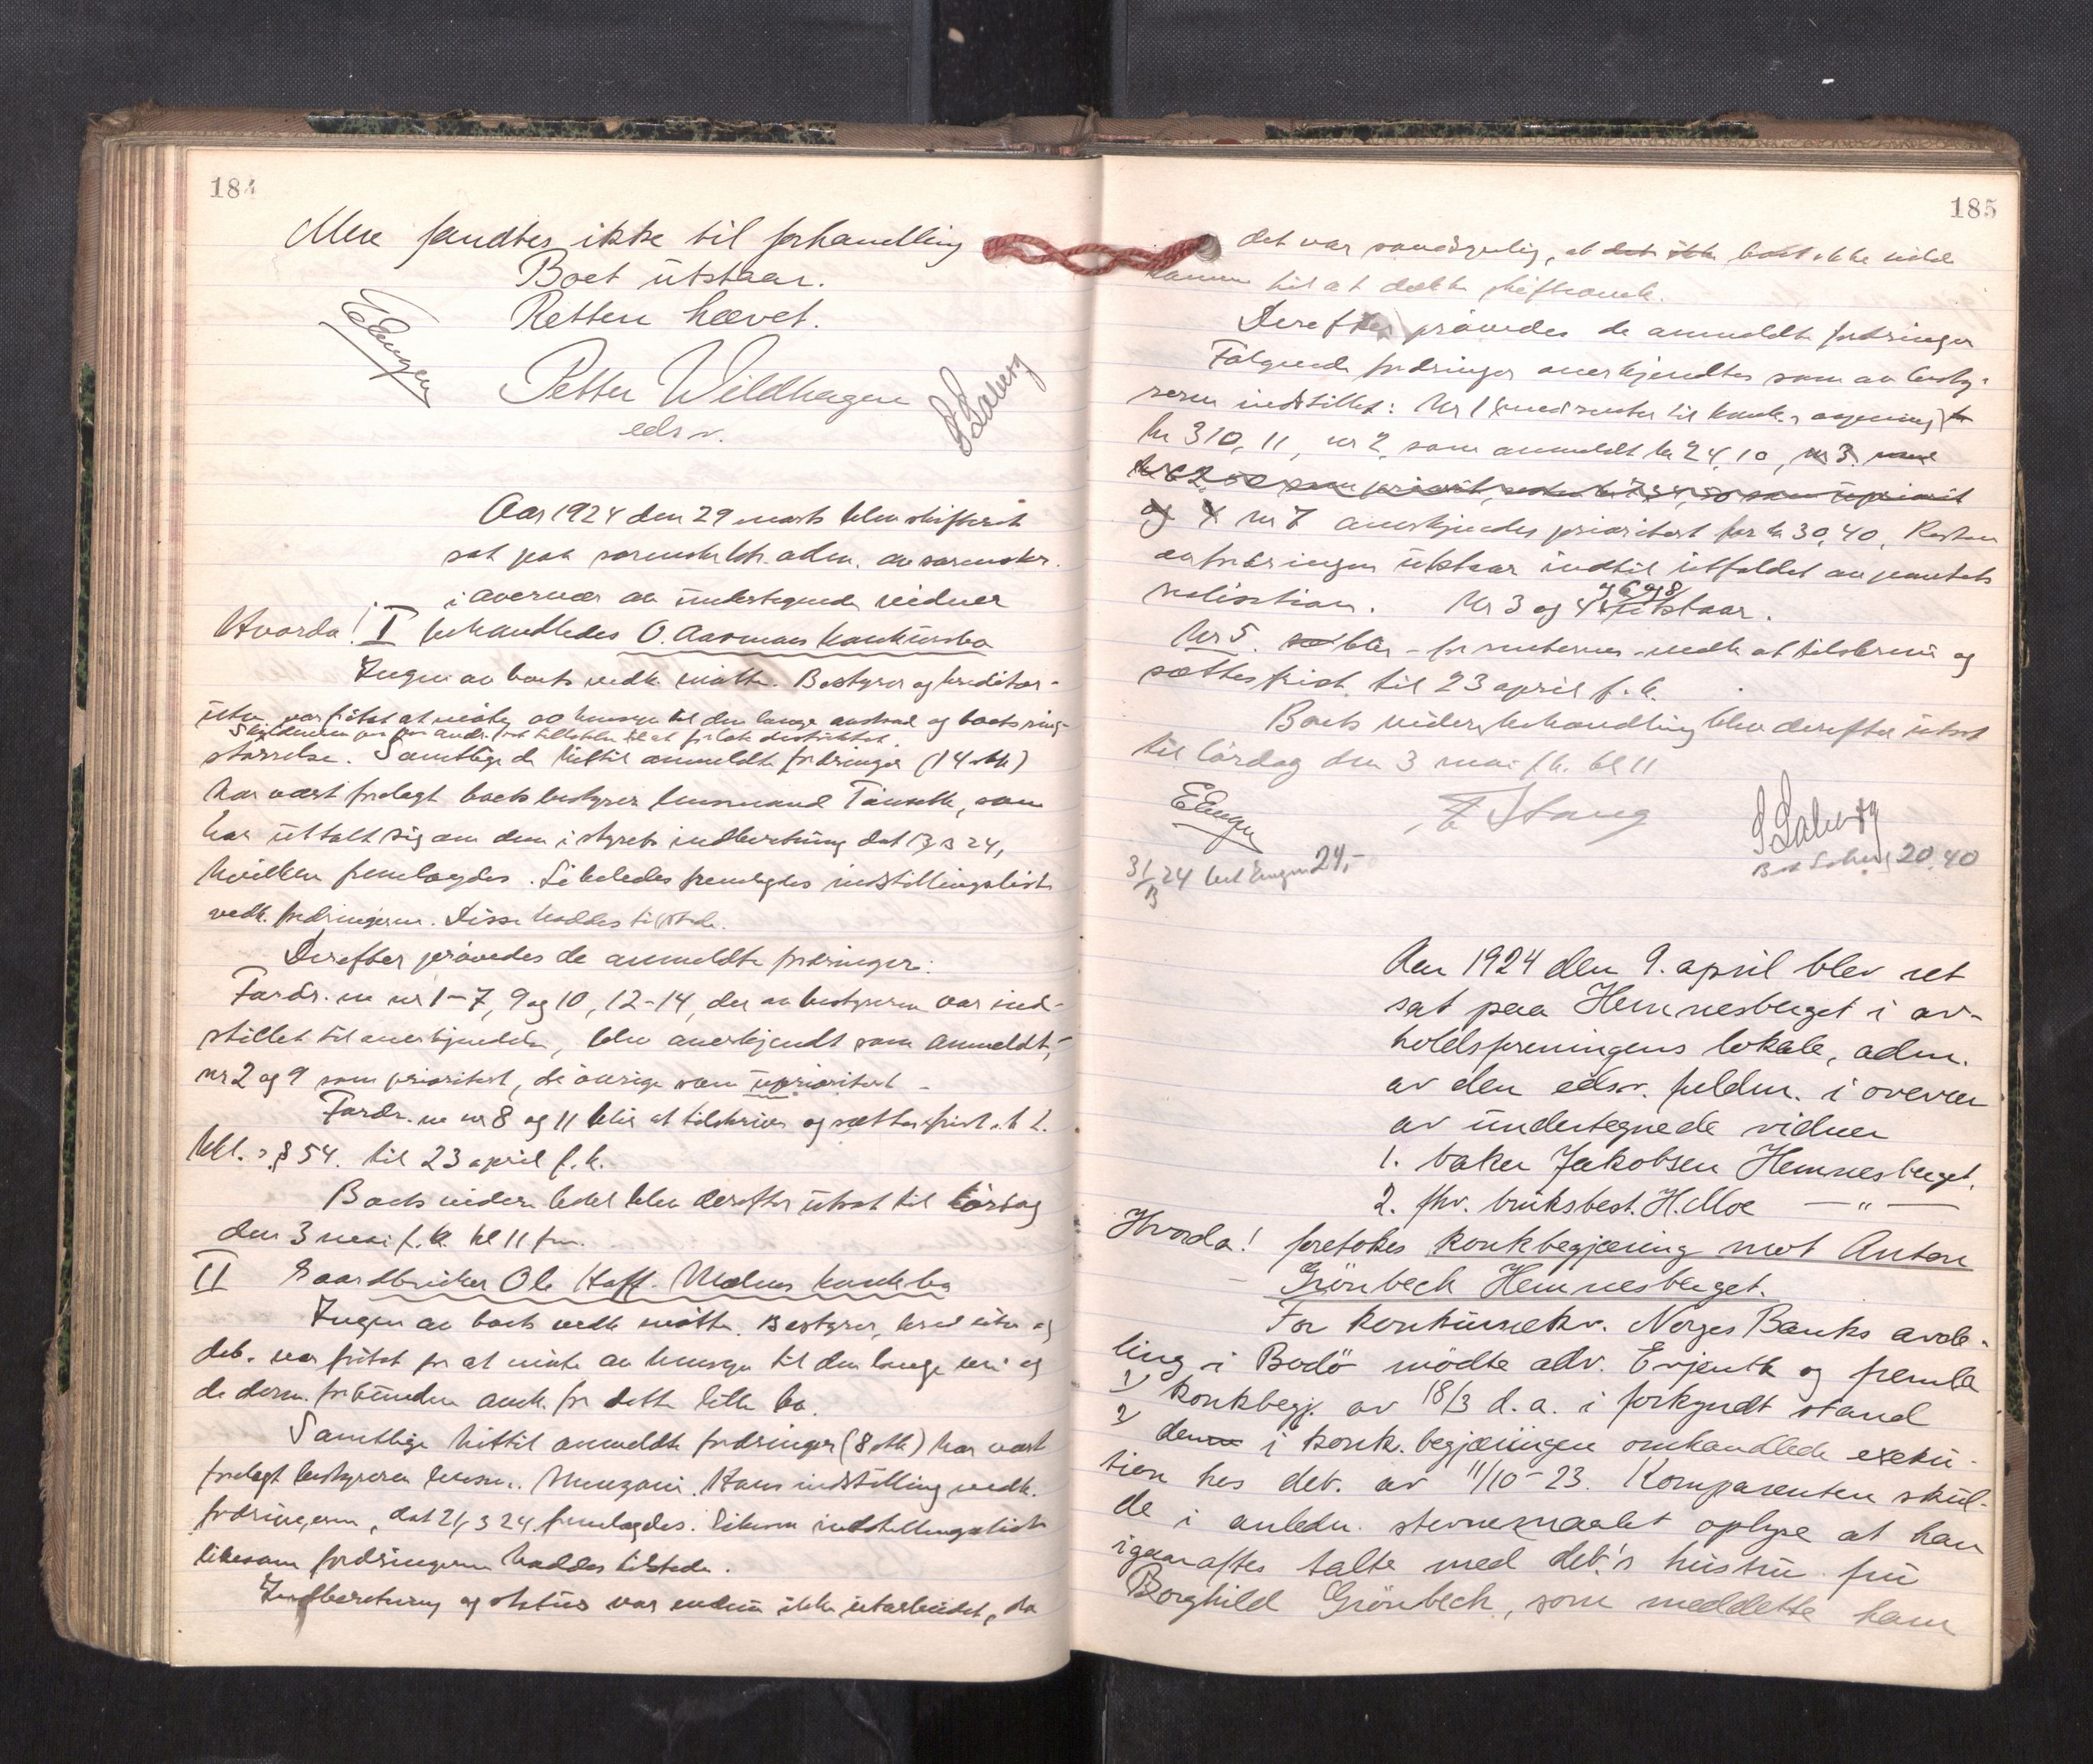 184
Mere fandtes ikke til forhandling
Boet utstaar.
Retten hævet.
EEngen
Petter Wildhagen
edsv.
S Solberg
Aar 1924 den 29 marts blev skifteret
sat paa sorenskr.ktr. adm. av sorenskr.
i overvær av undertegnede vidner
Hvorda! I behandledes O. Aasmoes konkursbo
Ingen av boets vedk. møtte. Bestyrer og kreditor-
utv. var fritat at møte av hensyn til den lange avstand og boets ring-
størrelse. Samtlige de hittil anmeldte fordringer (14 stk)
har vært forelagt boets bestyrer lensmand, som
har uttalt sig om dem i styrets indberetning dat 17/3 24,
hvilken fremlagdes. Likeledes fremlagdes indstillingsliste
vedk. fordringerne. Disse haddes tilstede.
Derefter prøvedes de anmeldte fordringer.
Fordr.ne nr 1-7, 9 og 10, 12-14, der av bestyreren var ind-
stillet til anerkjendelse, blev anerkjendt som anmeldt,
nr 2 og 9 som prioritert, de øvrige som uprioritert.
Fordr.ne nr 8 og 11 blir at tilskrive og sættes frist e.h.t.
kkl.s § 54. til 23 april f.k.
Boets videre beh. blev derefter utsat til lørdag
den 3 mai f.k. kl 11 fm.
II Gaardbruker Ole Hoff. konk.bo
Ingen av boets vedk. møtte. Bestyrer, kred.utv. og
deb. var fritat for at møte av hensyn til den lange vei og
de derm. forbundne omk. for dette lille bo.
Samtlige hittil anmeldte fordringer (8 stk) har vært
forelagt bestyreren lensm. Hans indstilling vedk.
fordringerne, dat 21/3 24 fremlagdes. indstillingsliste
likesom fordringerne haddes tilstede.
Indberetning og status var endnu ikke utarbeidet, da
185
det var sandsynlig, at det ikke boet ikke vilde
komme til at dække skifteomk.
Derefter prøvedes de anmeldte fordringer
Følgende fordringer anerkjendtes som av besty-
reren indstillet: Nr 1 (med renter til konk.s aapning)
kr 310,11, nr 2, som anmeldt kr 24,10, nr 3
og 4 Nr 7 anerkjendes prioritert for kr 30,40. Resten
av fordringen utstaar indtil utfaldet av pantets
realisation. Nr 3 og 4, 6 og 8 utstaar.
Nr 5. blir - for renternes vedk. at tilskrive og
sættes frist til 23 april f.k.
Boets videre behandling blev derefter utsat
til lørdag den 3 mai f.k. kl 11
EEngen
F Stang
S Solberg
31/3 24 bet Engen 24,-
Bet Solberg 20,40
Aar 1924 den 9. april blev ret
sat paa Hemnesberget i av-
holdsforeningens lokale, adm.
av den edsv. fuldm. i overvær
av undertegnede vidner
1. baker Jakobsen Hemnesberget.
2. fhv. bruksbest. H. Moe — " —
Hvorda! foretokes konkbegjæring mot Anton
Grönbeck Hemnesberget.
For konkursrekv. Norges Banks avde-
ling i Bodö mödte adv. Evjenth og freml.
1) konkbegj. av 18/3 d.a. i forkyndt stand
2) den i konk.begjæringen omhandlede exeku-
tion hos deb. av 11/10-23. Komparenten skul-
de i anledn. stevnemaalet oplyse at han
igaaraftes talte med deb.'s hustru fru
Borghild Grönbeck, som meddelte ham